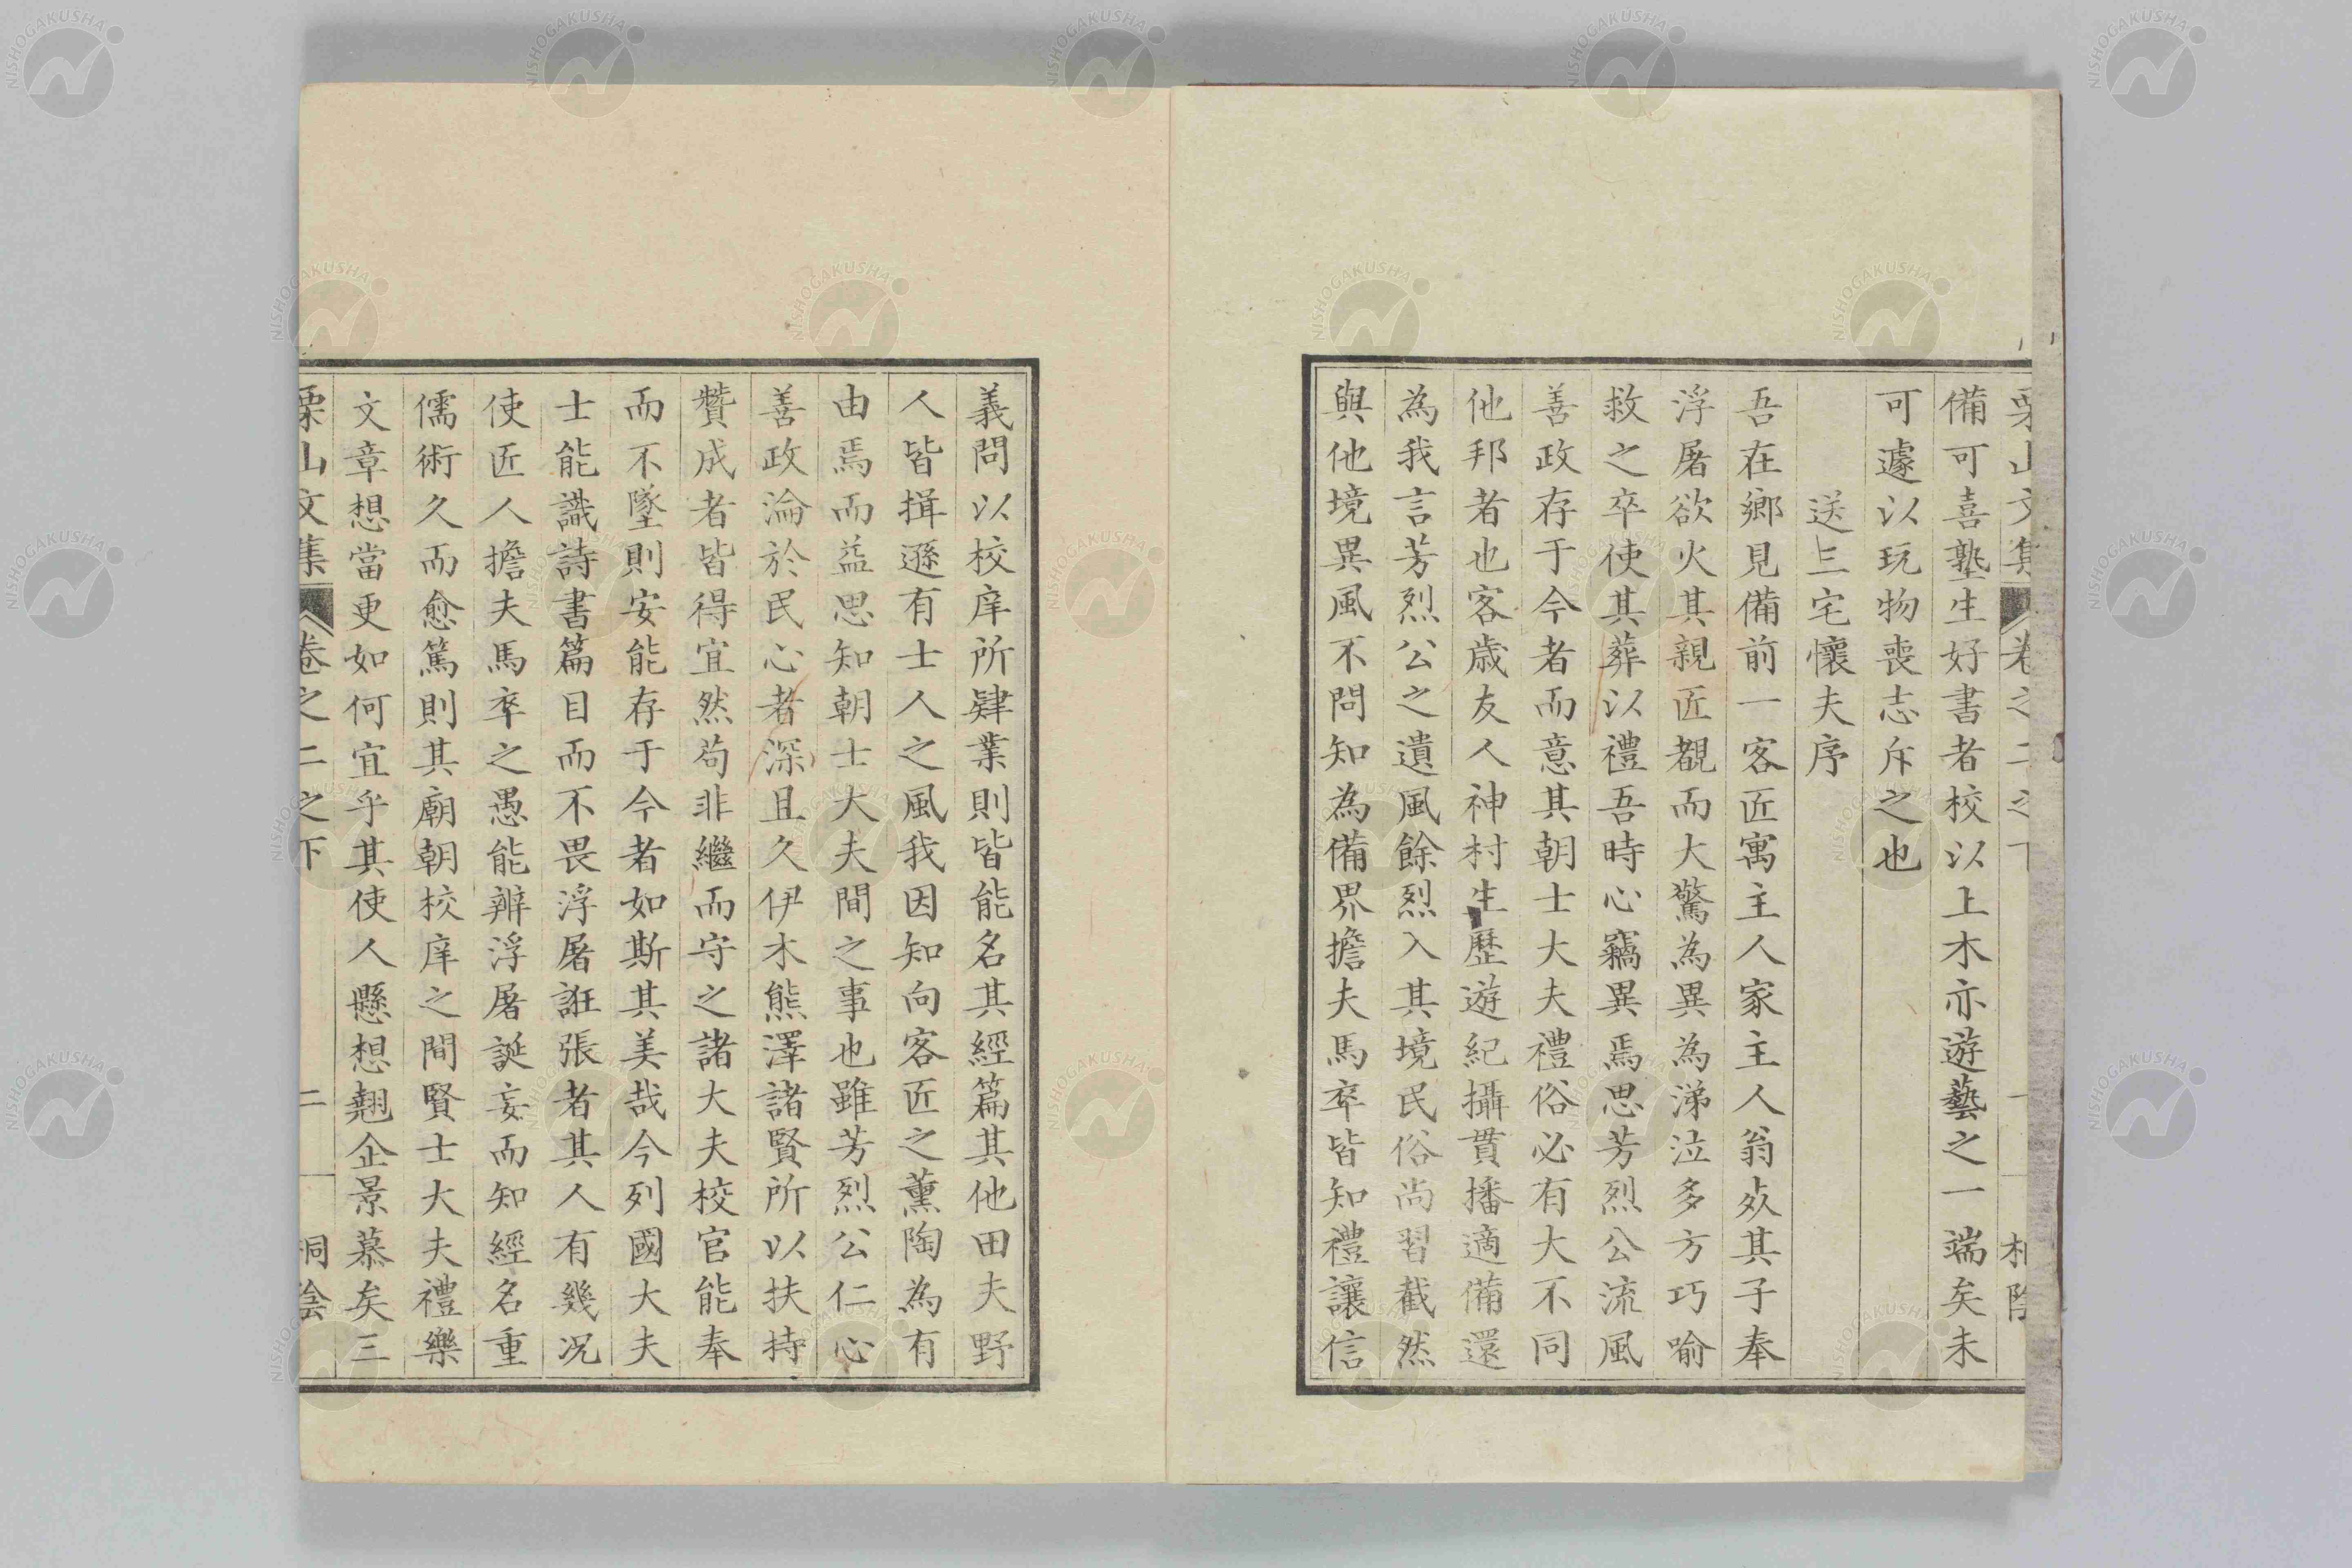 栗山文集 卷之二之下 一 桐陰
備可喜塾生好書者校以上木亦遊藝之一端矣未
可遽以玩物喪志斥之也
送三宅懷夫序
吾在鄉見備前一客匠寓主人家主人翁㱕其子奉
浮屠欲火其親匠覩而大驚為異為涕泣多方巧喻
救之卒使其葬以禮吾時心竊異焉思芳烈公流風
善政存于今者而意其朝士大夫禮俗必有大不同
他邦者也客歲友人神村生歷遊紀攝貫播適備還
為我言芳烈公之遺風餘烈入其境民俗尚習截然
與他境異風不問知為備界擔夫馬卒皆知禮讓信
義問以校庠所肄業則皆能名其經篇其他田夫野
人皆揖遜有士人之風我因知向客匠之薰陶為有
由焉而益思知朝士大夫間之事也雖芳烈公仁心
善政淪於民心者深且久伊木熊澤諸賢所以扶持
贊成者皆得宜然苟非繼而守之諸大夫校官能奉
而不墜則安能存于今者如斯其美哉今列國大夫
士能識詩書篇目而不畏浮屠誑張者其人有幾况
使匠人擔夫馬卒之愚能辨浮屠誕妄而知經名重
儒術久而愈篤則其廟朝校庠之間賢士大夫禮樂
文章想當更如何宜乎其使人懸想翹企景慕矣三
栗山文集 卷之二之下 二 桐陰
NISHOGAKUSHA